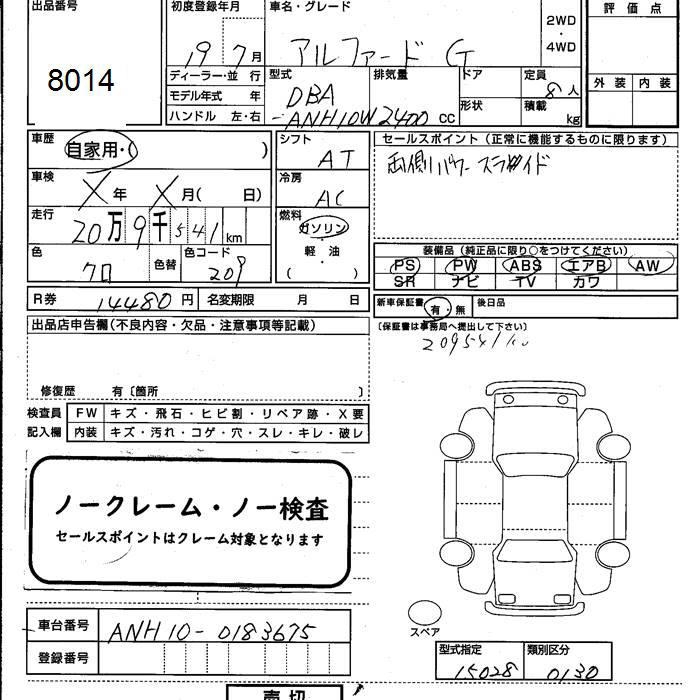 出品番号
8014
初度登録年月
19 7月
車名・グレード
アルファード G
2WD
・
4WD
評価点
外装 内装
ディーラー・並行
モデル年式 年
ハンドル 左・右
型式
DBA
-ANH10W
排気量
2400 cc
ドア
形状
定員
8人
積載
kg
車歴
自家用・( )
車検
X年 X月( 日)
走行
20万9千541km
色
クロ
色替
色コード
209
シフト
AT
冷房
AC
燃料
ガソリン
・
軽油
・
( )
セールスポイント(正常に機能するものに限ります)
両側パワースライド
装備品(純正品に限り○をつけてください)
PS PW ABS エアB AW
SR ナビ TV カワ
R券 14480円 名変期限 月 日
新車保証書 有・無 後日品
(保証書は事務局へ提出して下さい)
209541km
出品店申告欄(不良内容・欠品・注意事項等記載)
修復歴 有〔箇所 〕
検査員
記入欄
FW キズ・飛石・ヒビ割・リペア跡・X要
内装 キズ・汚れ・コゲ・穴・スレ・キレ・破レ
ノークレーム・ノー検査
セールスポイントはクレーム対象となります
スペア
車台番号 ANH10-0183675
登録番号
型式指定 類別区分
15028 0130
売切